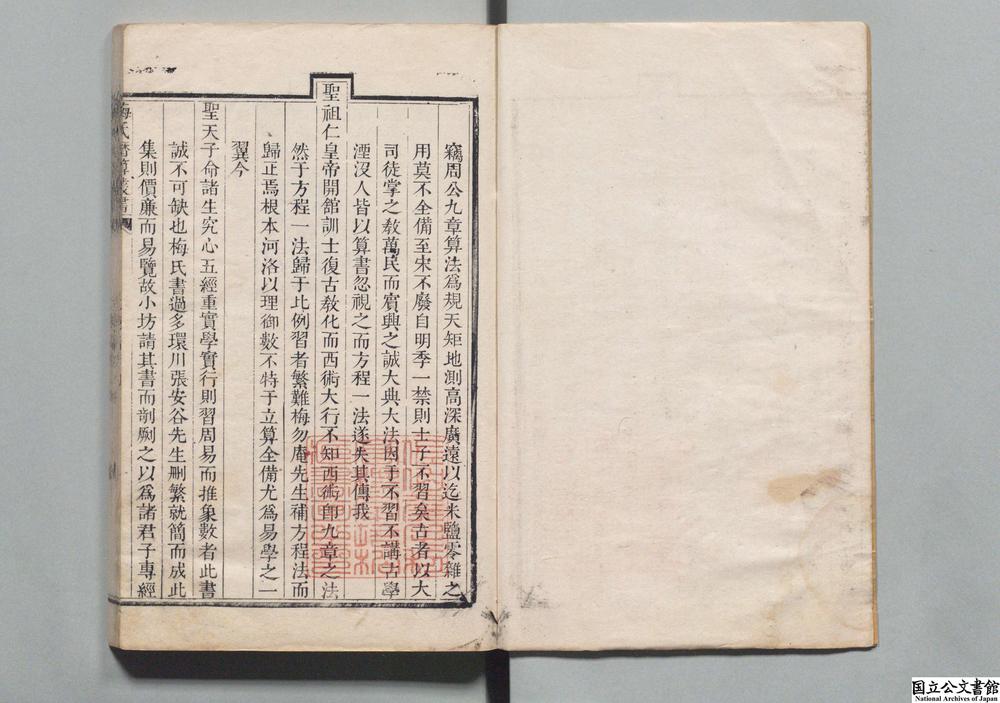 竊周公九章算法爲規天矩地測高深廣遠以迄米鹽零雜之
用莫不全備至宋不廢自明季一禁則士子不習矣古者以大
司徒掌之敎萬民而賓興之誠大典大法因于不習不講古學
湮沒人皆以算書忽視之而方程一法遂失其傳我
聖祖仁皇帝開舘訓士復古敎化而西術大行不知西術卽九章之法
然于方程一法歸于比例習者繁難梅勿庵先生補方程法而
歸正焉根本河洛以理御數不特于立算全備尤爲易學之一
翼今
聖天子命諸生究心五經重實學實行則習周易而推象數者此書
誠不可缺也梅氏書過多環川張安谷先生刪繁就簡而成此
集則價廉而易覽故小坊請其書而剞劂之以爲諸君子專經
梅氏曆算叢書
国立公文書館
National Archives of Japan